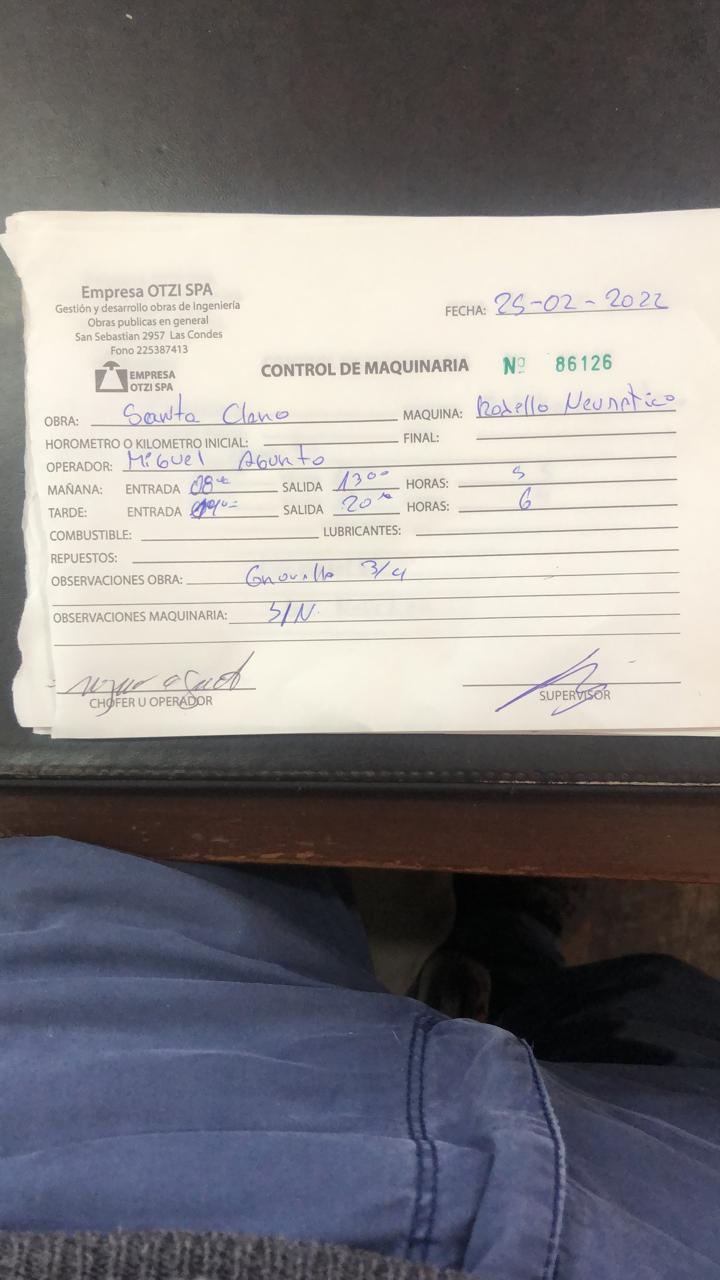 Empresa OTZI SPA
Gestión y desarrollo obras de Ingeniería
Obras publicas en general
San Sebastian 2957 Las Condes
Fono 225387413
EMPRESA
OTZI SPA
FECHA: 25-02-2022
CONTROL DE MAQUINARIA Nº 86126
OBRA: Santa Clara MAQUINA: Rodillo Neumatico
HOROMETRO O KILOMETRO INICIAL: FINAL:
OPERADOR: Miguel Agurto
MAÑANA: ENTRADA 08:00 SALIDA 13:00 HORAS: 5
TARDE: ENTRADA SALIDA 20:00 HORAS: 6
COMBUSTIBLE: LUBRICANTES:
REPUESTOS:
OBSERVACIONES OBRA: Gravilla 3/4
OBSERVACIONES MAQUINARIA: S/N.
CHOFER U OPERADOR SUPERVISOR